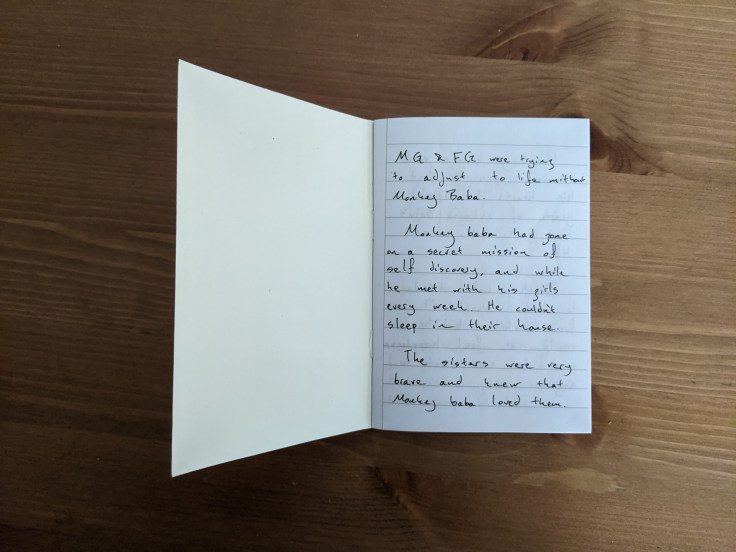 MG & FG were trying
to adjust to life without
Monkey Baba.
Monkey baba had gone
on a secret mission of
self discovery, and while
he met with his girls
every week. He couldn't
sleep in their house.
The sisters were very
brave and knew that
Monkey baba loved them.